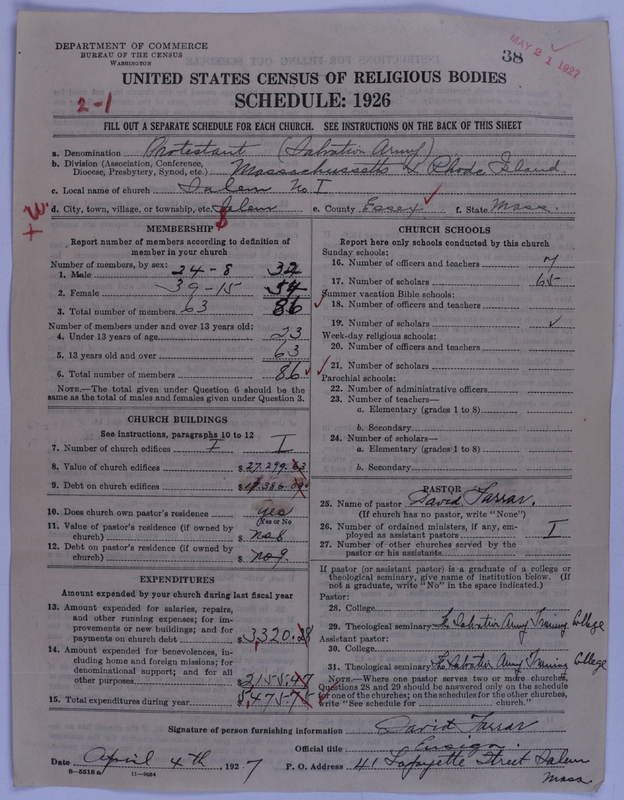 DEPARTMENT OF COMMERCE
BUREAU OF THE CENSUS
WASHINGTON
38
MAY 21 1927
UNITED STATES CENSUS OF RELIGIOUS BODIES
2-1
SCHEDULE: 1926
FILL OUT A SEPARATE SCHEDULE FOR EACH CHURCH. SEE INSTRUCTIONS ON THE BACK OF THIS SHEET
a. Denomination Protestant (Salvation Army)
b. Division (Association, Conference, Diocese, Presbytery, Synod, etc.) Massachussetts & Rhode Island
c. Local name of church Salem No. I
d. City, town, village, or township, etc. Salem e. County Essex f. State Mass.
MEMBERSHIP
Report number of members according to definition of
member in your church
Number of members, by sex:
1. Male 24-8 32
2. Female 39-15 54
3. Total number of members 63 86
Number of members under and over 13 years old:
4. Under 13 years of age 23
5. 13 years old and over 63
6. Total number of members 86
NOTE.—The total given under Question 6 should be the
same as the total of males and females given under Question 3.
CHURCH BUILDINGS
See instructions, paragraphs 10 to 12
7. Number of church edifices I I
8. Value of church edifices $ 27.299.63
9. Debt on church edifices $
10. Does church own pastor's residence yes
(Yes or No)
11. Value of pastor's residence (if owned by
church) $ no 8
12. Debt on pastor's residence (if owned by
church) $ no 9.
EXPENDITURES
Amount expended by your church during last fiscal year
13. Amount expended for salaries, repairs,
and other running expenses; for im-
provements or new buildings; and for
payments on church debt $ 3,320.28
14. Amount expended for benevolences, in-
cluding home and foreign missions; for
denominational support; and for all
other purposes $ 2155.47
15. Total expenditures during year $ 5,475.75
CHURCH SCHOOLS
Report here only schools conducted by this church
Sunday schools:
16. Number of officers and teachers 7
17. Number of scholars 65
Summer vacation Bible schools:
18. Number of officers and teachers
19. Number of scholars
Week-day religious schools:
20. Number of officers and teachers
21. Number of scholars
Parochial schools:
22. Number of administrative officers
23. Number of teachers—
a. Elementary (grades 1 to 8)
b. Secondary
24. Number of scholars—
a. Elementary (grades 1 to 8)
b. Secondary
PASTOR
25. Name of pastor David Farrar.
(If church has no pastor, write "None")
26. Number of ordained ministers, if any, em-
ployed as assistant pastors I
27. Number of other churches served by the
pastor or his assistants
If pastor (or assistant pastor) is a graduate of a college or
theological seminary, give name of institution below. (If
not a graduate, write "No" in the space indicated.)
Pastor:
28. College
29. Theological seminary The Salvation Army Training College
Assistant pastor:
30. College
31. Theological seminary The Salvation Army Training College
NOTE.—Where one pastor serves two or more churches,
Questions 28 and 29 should be answered only on the schedule
for one of the churches; on the schedules for the other churches,
write "See schedule for church."
Signature of person furnishing information David Farrar
Official title Ensign.
Date April 4th, 1927 P. O. Address 41 Lafayette Street Salem
Mass.
8-5518a 11-9684